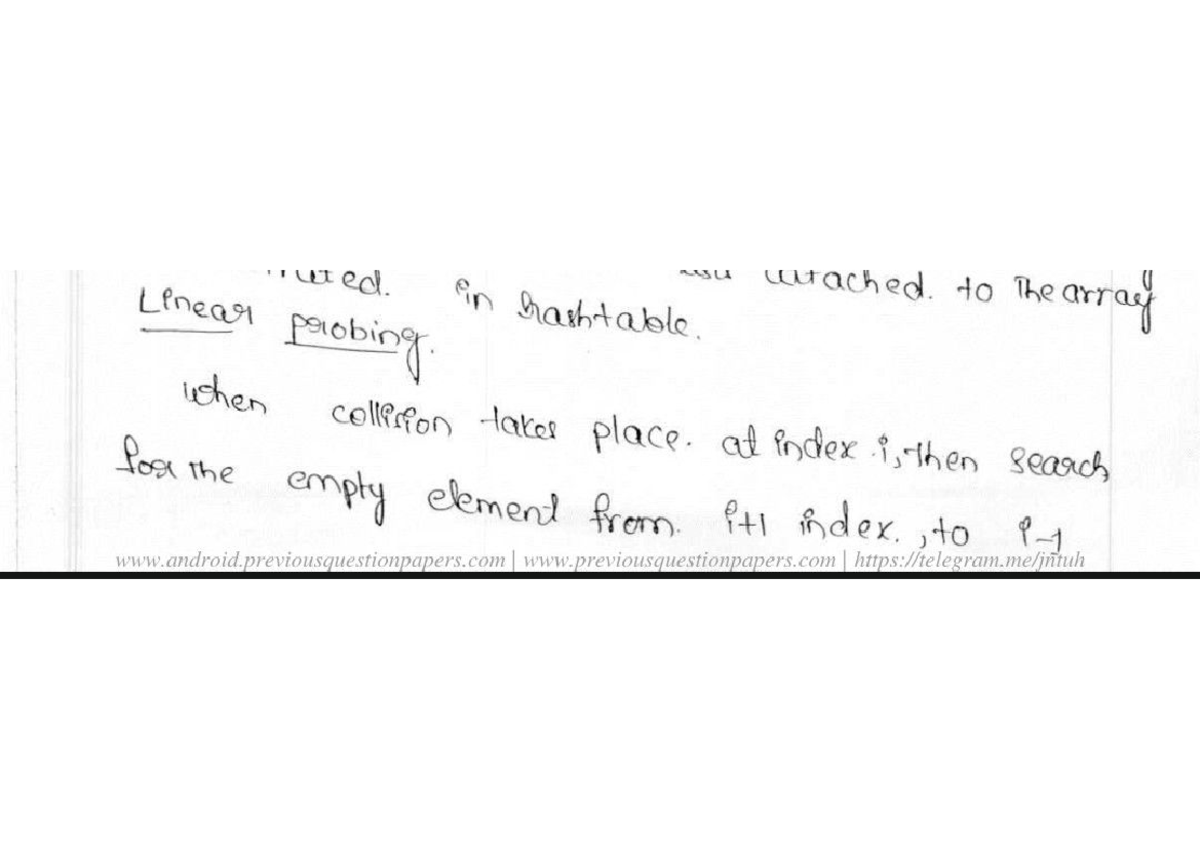 attached. to The array
in hashtable.
Linear probing.
when collision takes place. at index i, then search
for the empty element from. i+1 index., to i-1
www.android.previousquestionpapers.com | www.previousquestionpapers.com | https://telegram.me/jntuh